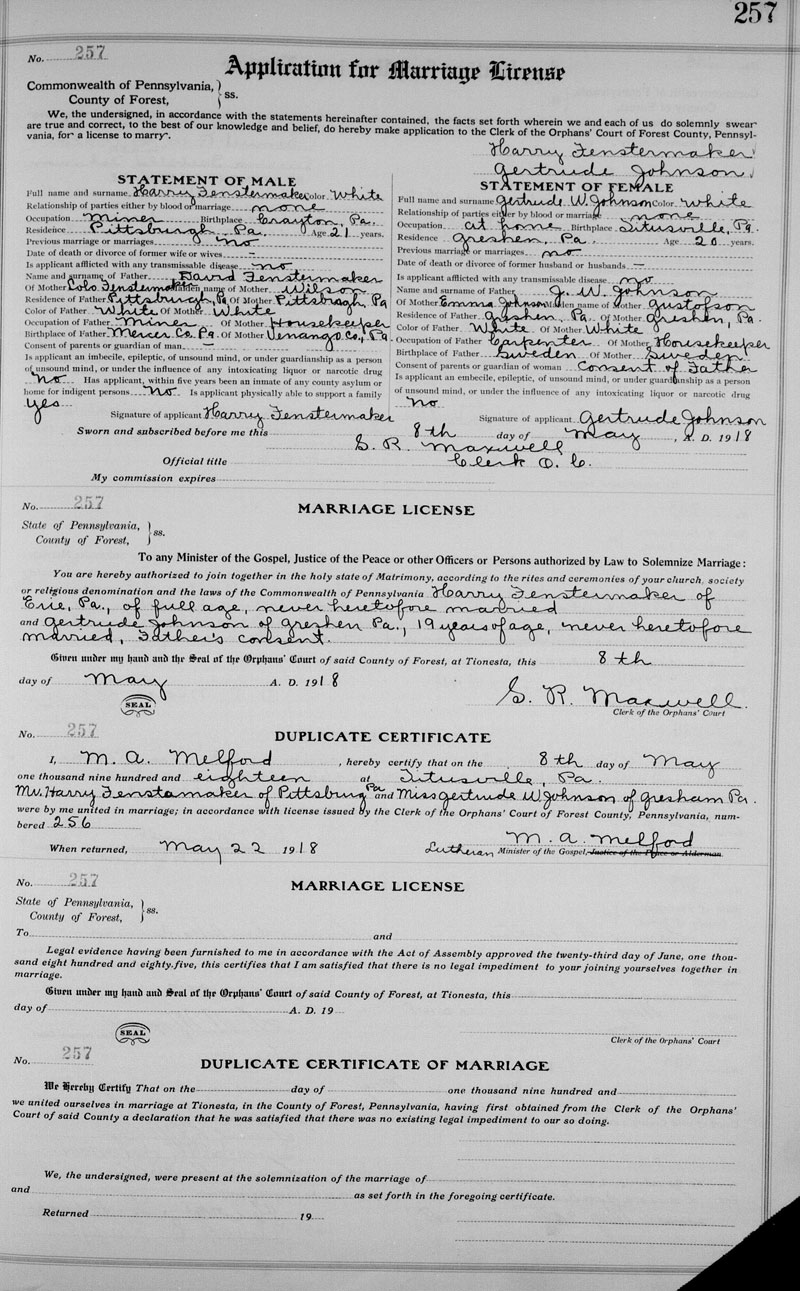 257
No. 257
Application for Marriage License
Commonwealth of Pennsylvania,
County of Forest, } ss.
We, the undersigned, in accordance with the statements hereinafter contained, the facts set forth wherein we and each of us do solemnly swear
are true and correct, to the best of our knowledge and belief, do hereby make application to the Clerk of the Orphans' Court of Forest County, Pennsyl-
vania, for a license to marry.
Harry Fenstermaker
Gertrude Johnson
STATEMENT OF MALE
Full name and surname Harry Fenstermaker Color White
Relationship of parties either by blood or marriage none
Occupation Miner Birthplace Crayton, Pa.
Residence Pittsburgh, Pa. Age 21 years.
Previous marriage or marriages no
Date of death or divorce of former wife or wives –
Is applicant afflicted with any transmissable disease no
Name and surname of Father David Fenstermaker
Of Mother Colo Fenstermaker Maiden name of Mother Wilson
Residence of Father Pittsburgh, Pa Of Mother Pittsbragh Pa
Color of Father White Of Mother White
Occupation of Father Miner Of Mother Housekeeper
Birthplace of Father Mercer Co Pa. Of Mother Venango Co., Pa.
Consent of parents or guardian of man –
Is applicant an imbecile, epileptic, of unsound mind, or under guardianship as a person
of unsound mind, or under the influence of any intoxicating liquor or narcotic drug
No Has applicant, within five years been an inmate of any county asylum or
home for indigent persons No. Is applicant physically able to support a family
yes
Signature of applicant Harry Fenstermaker
STATEMENT OF FEMALE
Full name and surname Gertrude W. Johnson Color White
Relationship of parties either by blood or marriage none
Occupation at home Birthplace Titusville, Pa.
Residence Greshen, Pa. Age 20 years.
Previous marriage or marriages no
Date of death or divorce of former husband or husbands –
Is applicant afflicted with any transmissable disease no
Name and surname of Father J. W. Johnson
Of Mother Emma Johnson Maiden name of Mother Gustofson
Residence of Father Greshen, Pa. Of Mother Greshen, Pa.
Color of Father White Of Mother White
Occupation of Father Carpenter Of Mother Housekeeper
Birthplace of Father Sweden Of Mother Sweden
Consent of parents or guardian of woman Consent of Father
Is applicant an embecile, epileptic, of unsound mind, or under guardianship as a person
of unsound mind, or under the influence of any intoxicating liquor or narcotic drug
No
Signature of applicant Gertrude Johnson
Sworn and subscribed before me this 8th day of May, A. D. 1918
S. R. Maxwell
Official title Clerk O. C.
My commission expires
No. 257
MARRIAGE LICENSE
State of Pennsylvania,
County of Forest, } ss.
To any Minister of the Gospel, Justice of the Peace or other Officers or Persons authorized by Law to Solemnize Marriage:
You are hereby authorized to join together in the holy state of Matrimony, according to the rites and ceremonies of your church, society
or religious denomination and the laws of the Commonwealth of Pennsylvania Harry Fenstermaker of
Erie, Pa., of full age, never heretofore married
and Gertrude Johnson of Greshen Pa., 19 years of age, never heretofore
married, Father's consent.
Given under my hand and the Seal of the Orphans' Court of said County of Forest, at Tionesta, this 8th
day of May A. D. 1918
SEAL
S. R. Maxwell.
Clerk of the Orphans' Court
No. 257
DUPLICATE CERTIFICATE
I, M. A. Melford, hereby certify that on the 8th day of May
one thousand nine hundred and eighteen at Titusville, Pa.
Mr. Harry Fenstermaker of Pittsburg Pa and Miss Gertrude W Johnson of Gresham Pa.
were by me united in marriage; in accordance with license issued by the Clerk of the Orphans' Court of Forest County, Pennsylvania, num-
bered 256
M. A. Melford
When returned, May 22 1918 Lutheran Minister of the Gospel, Justice of the Peace or Alderman.
No. 257
MARRIAGE LICENSE
State of Pennsylvania,
County of Forest, } ss.
To and
Legal evidence having been furnished to me in accordance with the Act of Assembly approved the twenty-third day of June, one thou-
sand eight hundred and eighty-five, this certifies that I am satisfied that there is no legal impediment to your joining yourselves together in
marriage.
Given under my hand and Seal of the Orphans' Court of said County of Forest, at Tionesta, this
day of A. D. 19
SEAL
Clerk of the Orphans' Court
No. 257
DUPLICATE CERTIFICATE OF MARRIAGE
We Hereby Certify That on the day of one thousand nine hundred and
we united ourselves in marriage at Tionesta, in the County of Forest, Pennsylvania, having first obtained from the Clerk of the Orphans'
Court of said County a declaration that he was satisfied that there was no existing legal impediment to our so doing.
We, the undersigned, were present at the solemnization of the marriage of
and as set forth in the foregoing certificate.
Returned 19